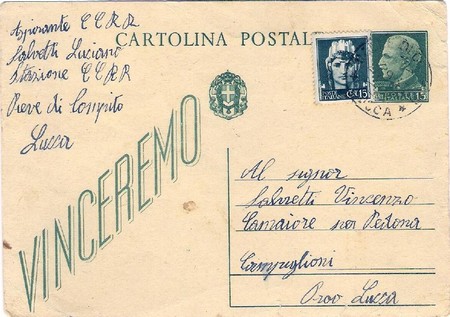 Aspirante CCRR
Salvetti Luciano
Stazione CCRR
Pieve di Compito
Lucca
CARTOLINA POSTALE
POSTE ITALIANE
C.15
15
LUCCA
VINCEREMO
Al signor
Salvetti Vincenzo
Camaiore per Pedona
Campiglioni
Prov Lucca